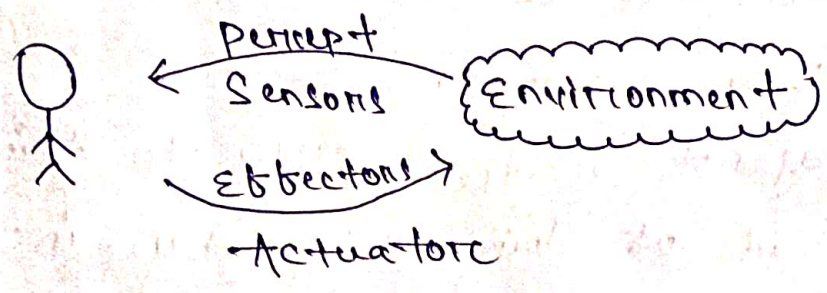 Percept
Sensors
Environment
Effectors
Actuator